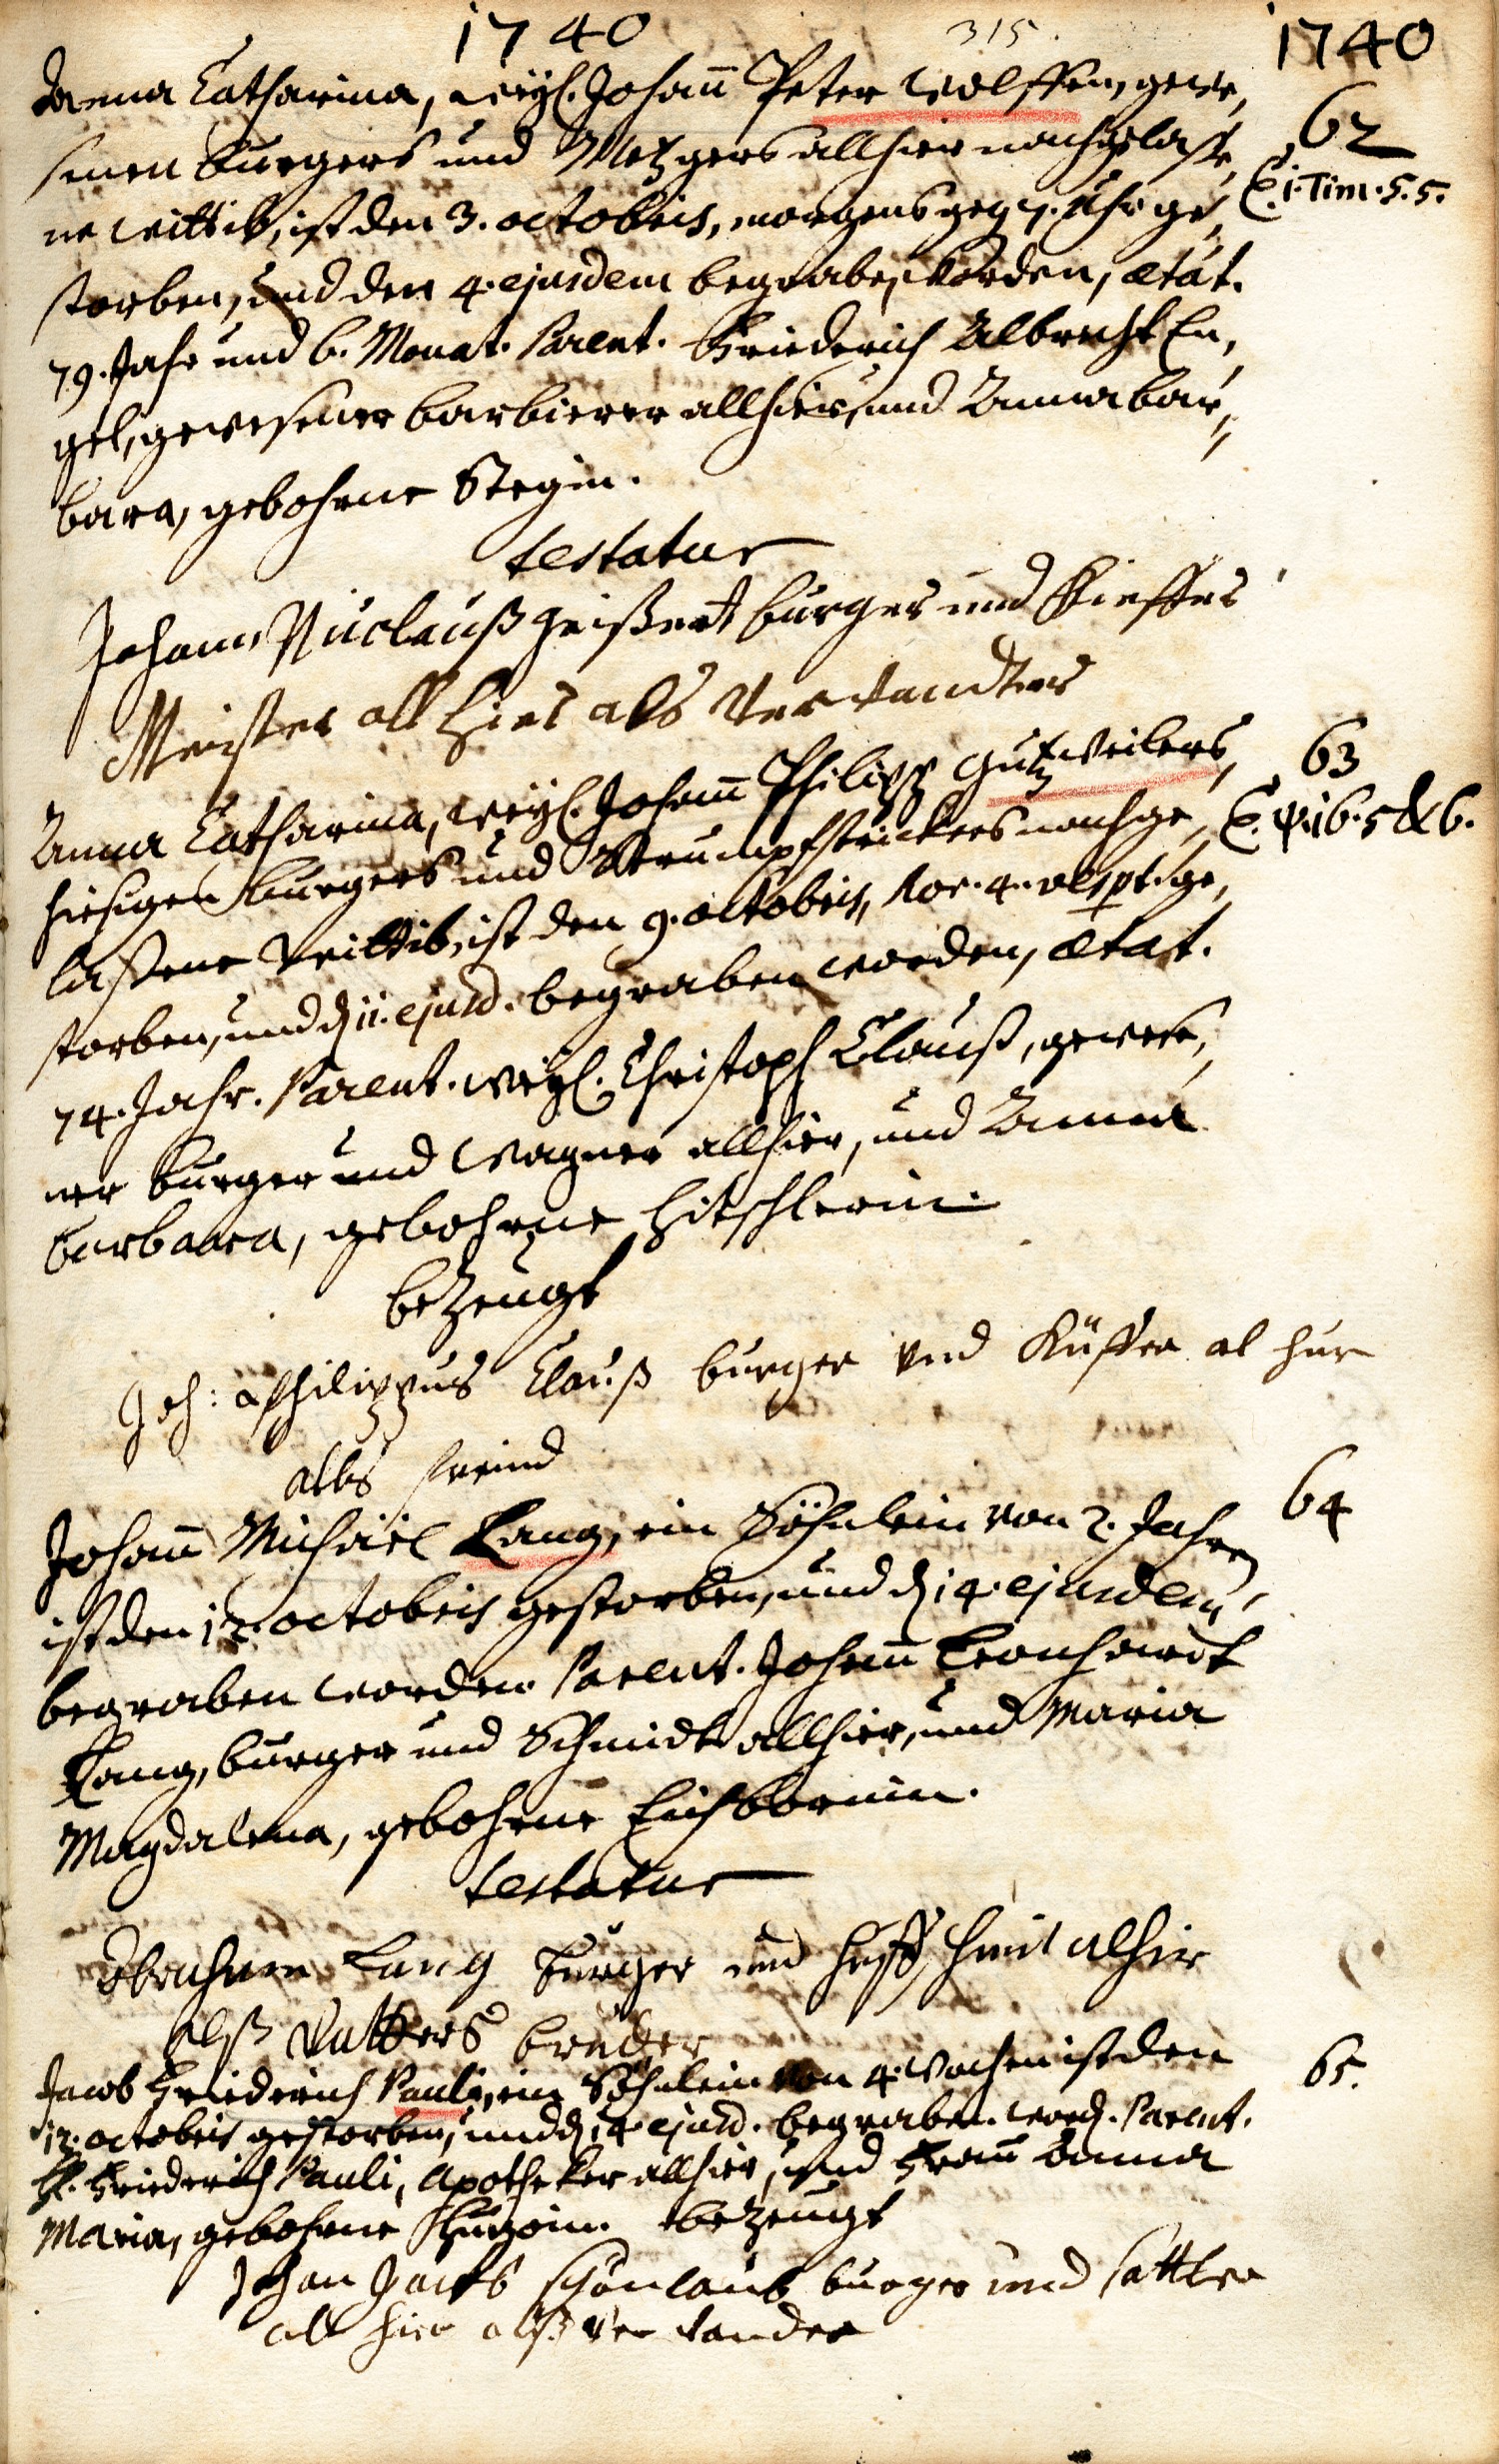 1740 315. 1740
Anna Catharina, weyl. Johan̄ Peter Wolffen, gewe,
senen burgers und Metzgers allhier nachgelaße,
ne Wittib, ist den 3. octobris, morgens geg. 7. Uhr ge,
storben, und den 4. ejusdem begraben worden, ætat.
79. Jahr und 6. Monat. Parent. Friederich Albrecht En,
gel, gewesener barbierer allhier, und Anna bar,
bara, gebohrne Stegin.
testatur
62
T. 1. Tim. 5. 5.
Johann Niclauß Geißert burger und Kieffer
Meister all hier als Verwandter
Anna Catharina, weyl. Johan̄ Philipp Gutzweilers,
hiesigen burgers und Strumpfstrickers nachge,
laßene Wittib, ist den 9. octobris, hor. 4. vespt. ge,
storben, und d. 11. ejusd. begraben worden, ætat.
74. Jahr. Parent. weyl. Christoph Clauß, gewese,
ner burger und Wagner allhier, und Anna
barbaara, gebohrne Hitschlerin.
bezeugt
63
T. ψ. 16. 5 & 6.
Joh: Philippus Clauß burger und Küffer al hier
alls freind
Johan̄ Michäel Lang, ein Söhnlein von 2. Jahren
ist den 12. octobris gestorben, und d. 14. ejusdem
begraben worden. Parent. Johan̄ Leonhardt
Lang, burger und Schmidt allhier, und Maria
Magdalena, gebohrne Eichbornin.
testatur
64
Abraham Lang burger und Huffschmit alhir
alß Vatters bruder
Jacob Friederich Pauli, ein Söhnlein von 4. Wochen ist den
12. octobris gestorben, und d. 14 ejusd. begraben word. Parent.
H. Friederich Pauli, Apotheker allhier, und Frau Anna
Maria, gebohrne bezeugt
65.
Johan Jacob Schönlaub burger und Sattler
all hier alß ver wander